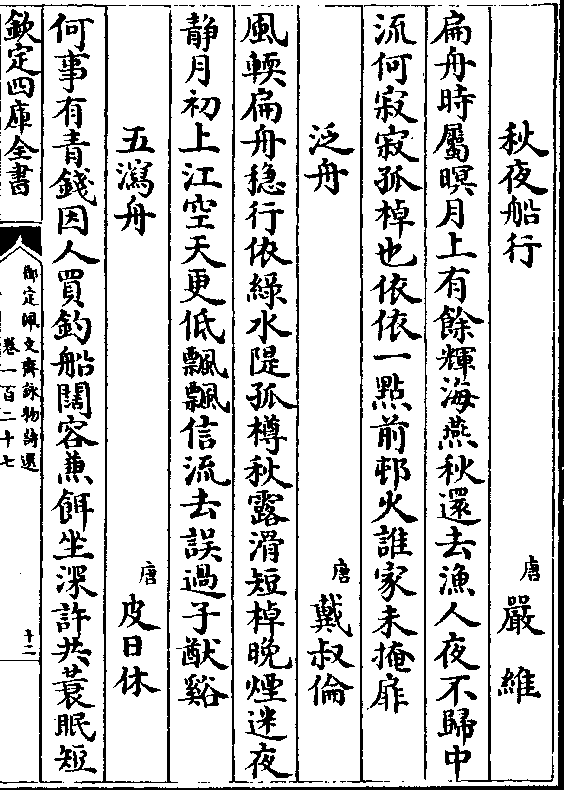 秋夜船行 唐 嚴維
扁舟時屬暝月上有餘輝海燕秋還去漁人夜不歸中
流何寂寂孤棹也依依一點前邨火誰家未掩扉
泛舟 唐 戴叔倫
風輭扁舟穏行依綠水隄孤樽秋露滑短棹晚煙迷夜
静月初上江空天更低飄飄信流去誤過子猷谿
五瀉舟 唐 皮日休
何事有青錢因人買釣船闊容兼餌坐深許共蓑眠短
欽定四庫全書
御定佩文齋詠物詩選
卷一百二十七
十二